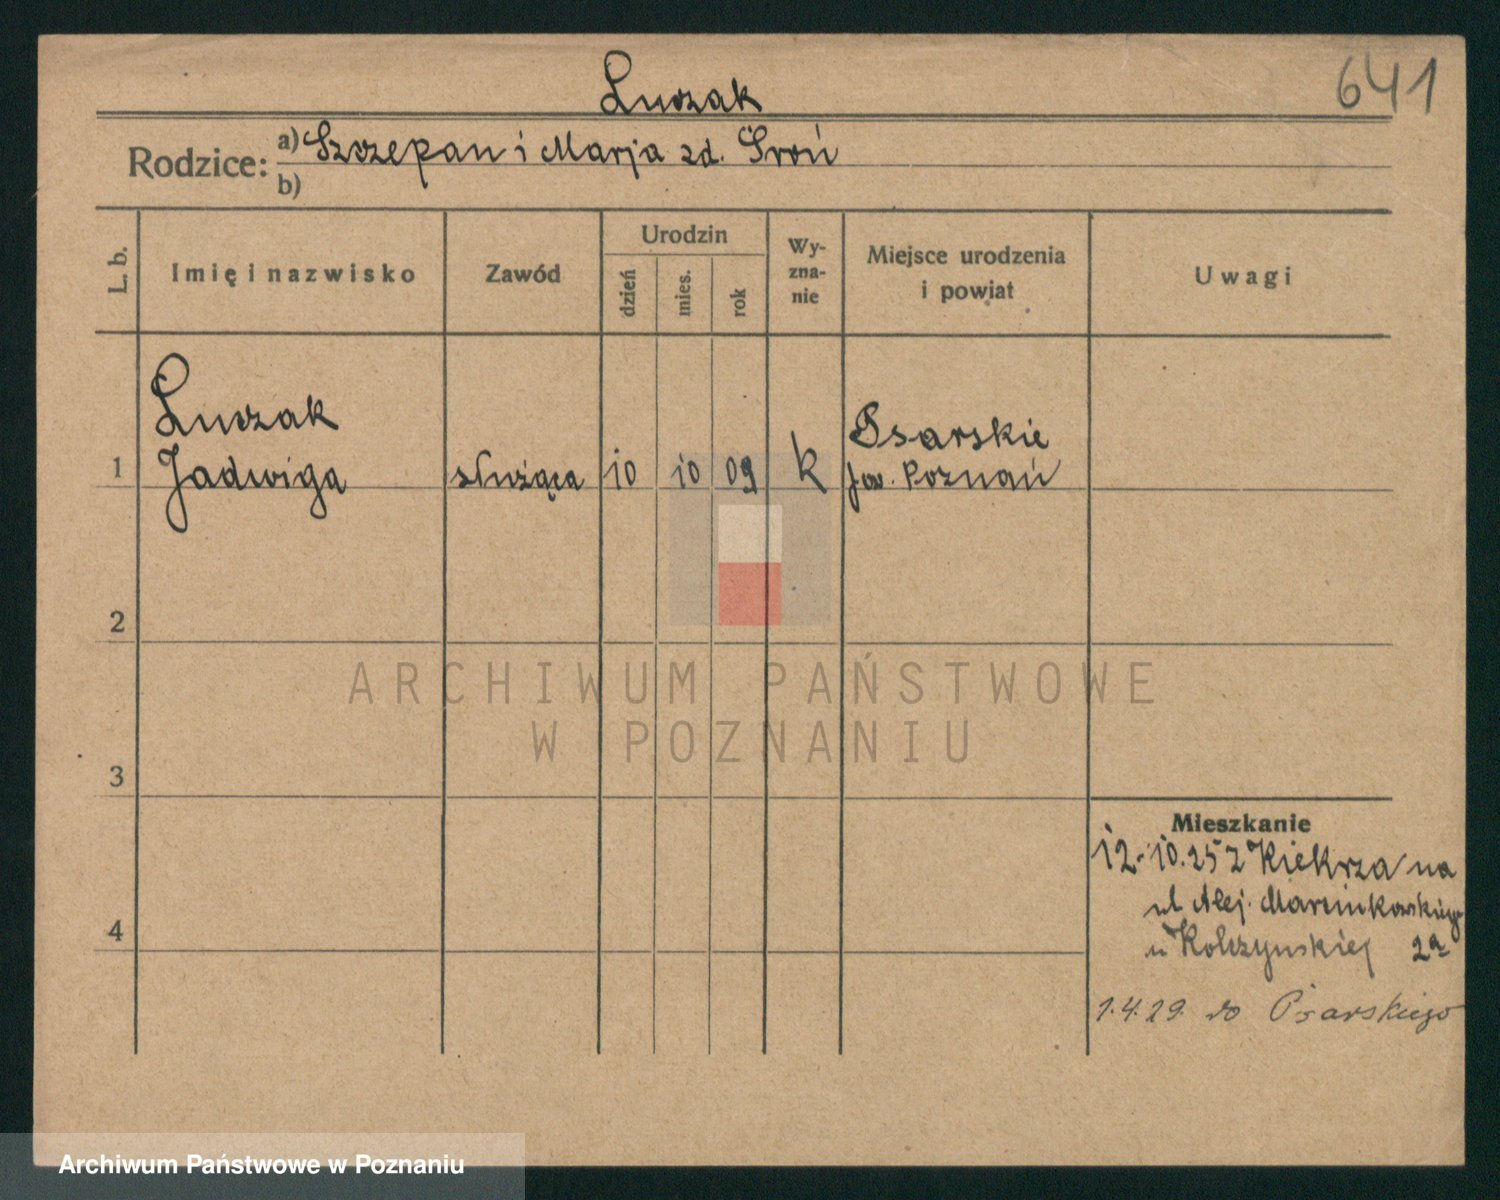 641
Luczak
Rodzice: a) Szczepan i Marja zd. Sroń
b)
L. b.
Imię i nazwisko
Zawód
Urodzin
dzień
mies.
rok
Wy-
zna-
nie
Miejsce urodzenia
i powiat
Uwagi
Luczak
1 Jadwiga służąca 10 10 09 k Psarskie
pow. Poznań
2
3
4
Mieszkanie
12.10.25 z Kiekrza na
ul Alej. Marcinkowskiego
u Kolczynskiej 2a
1.4.29. do Psarskiego
ARCHIWUM PAŃSTWOWE
W POZNANIU
Archiwum Państwowe w Poznaniu